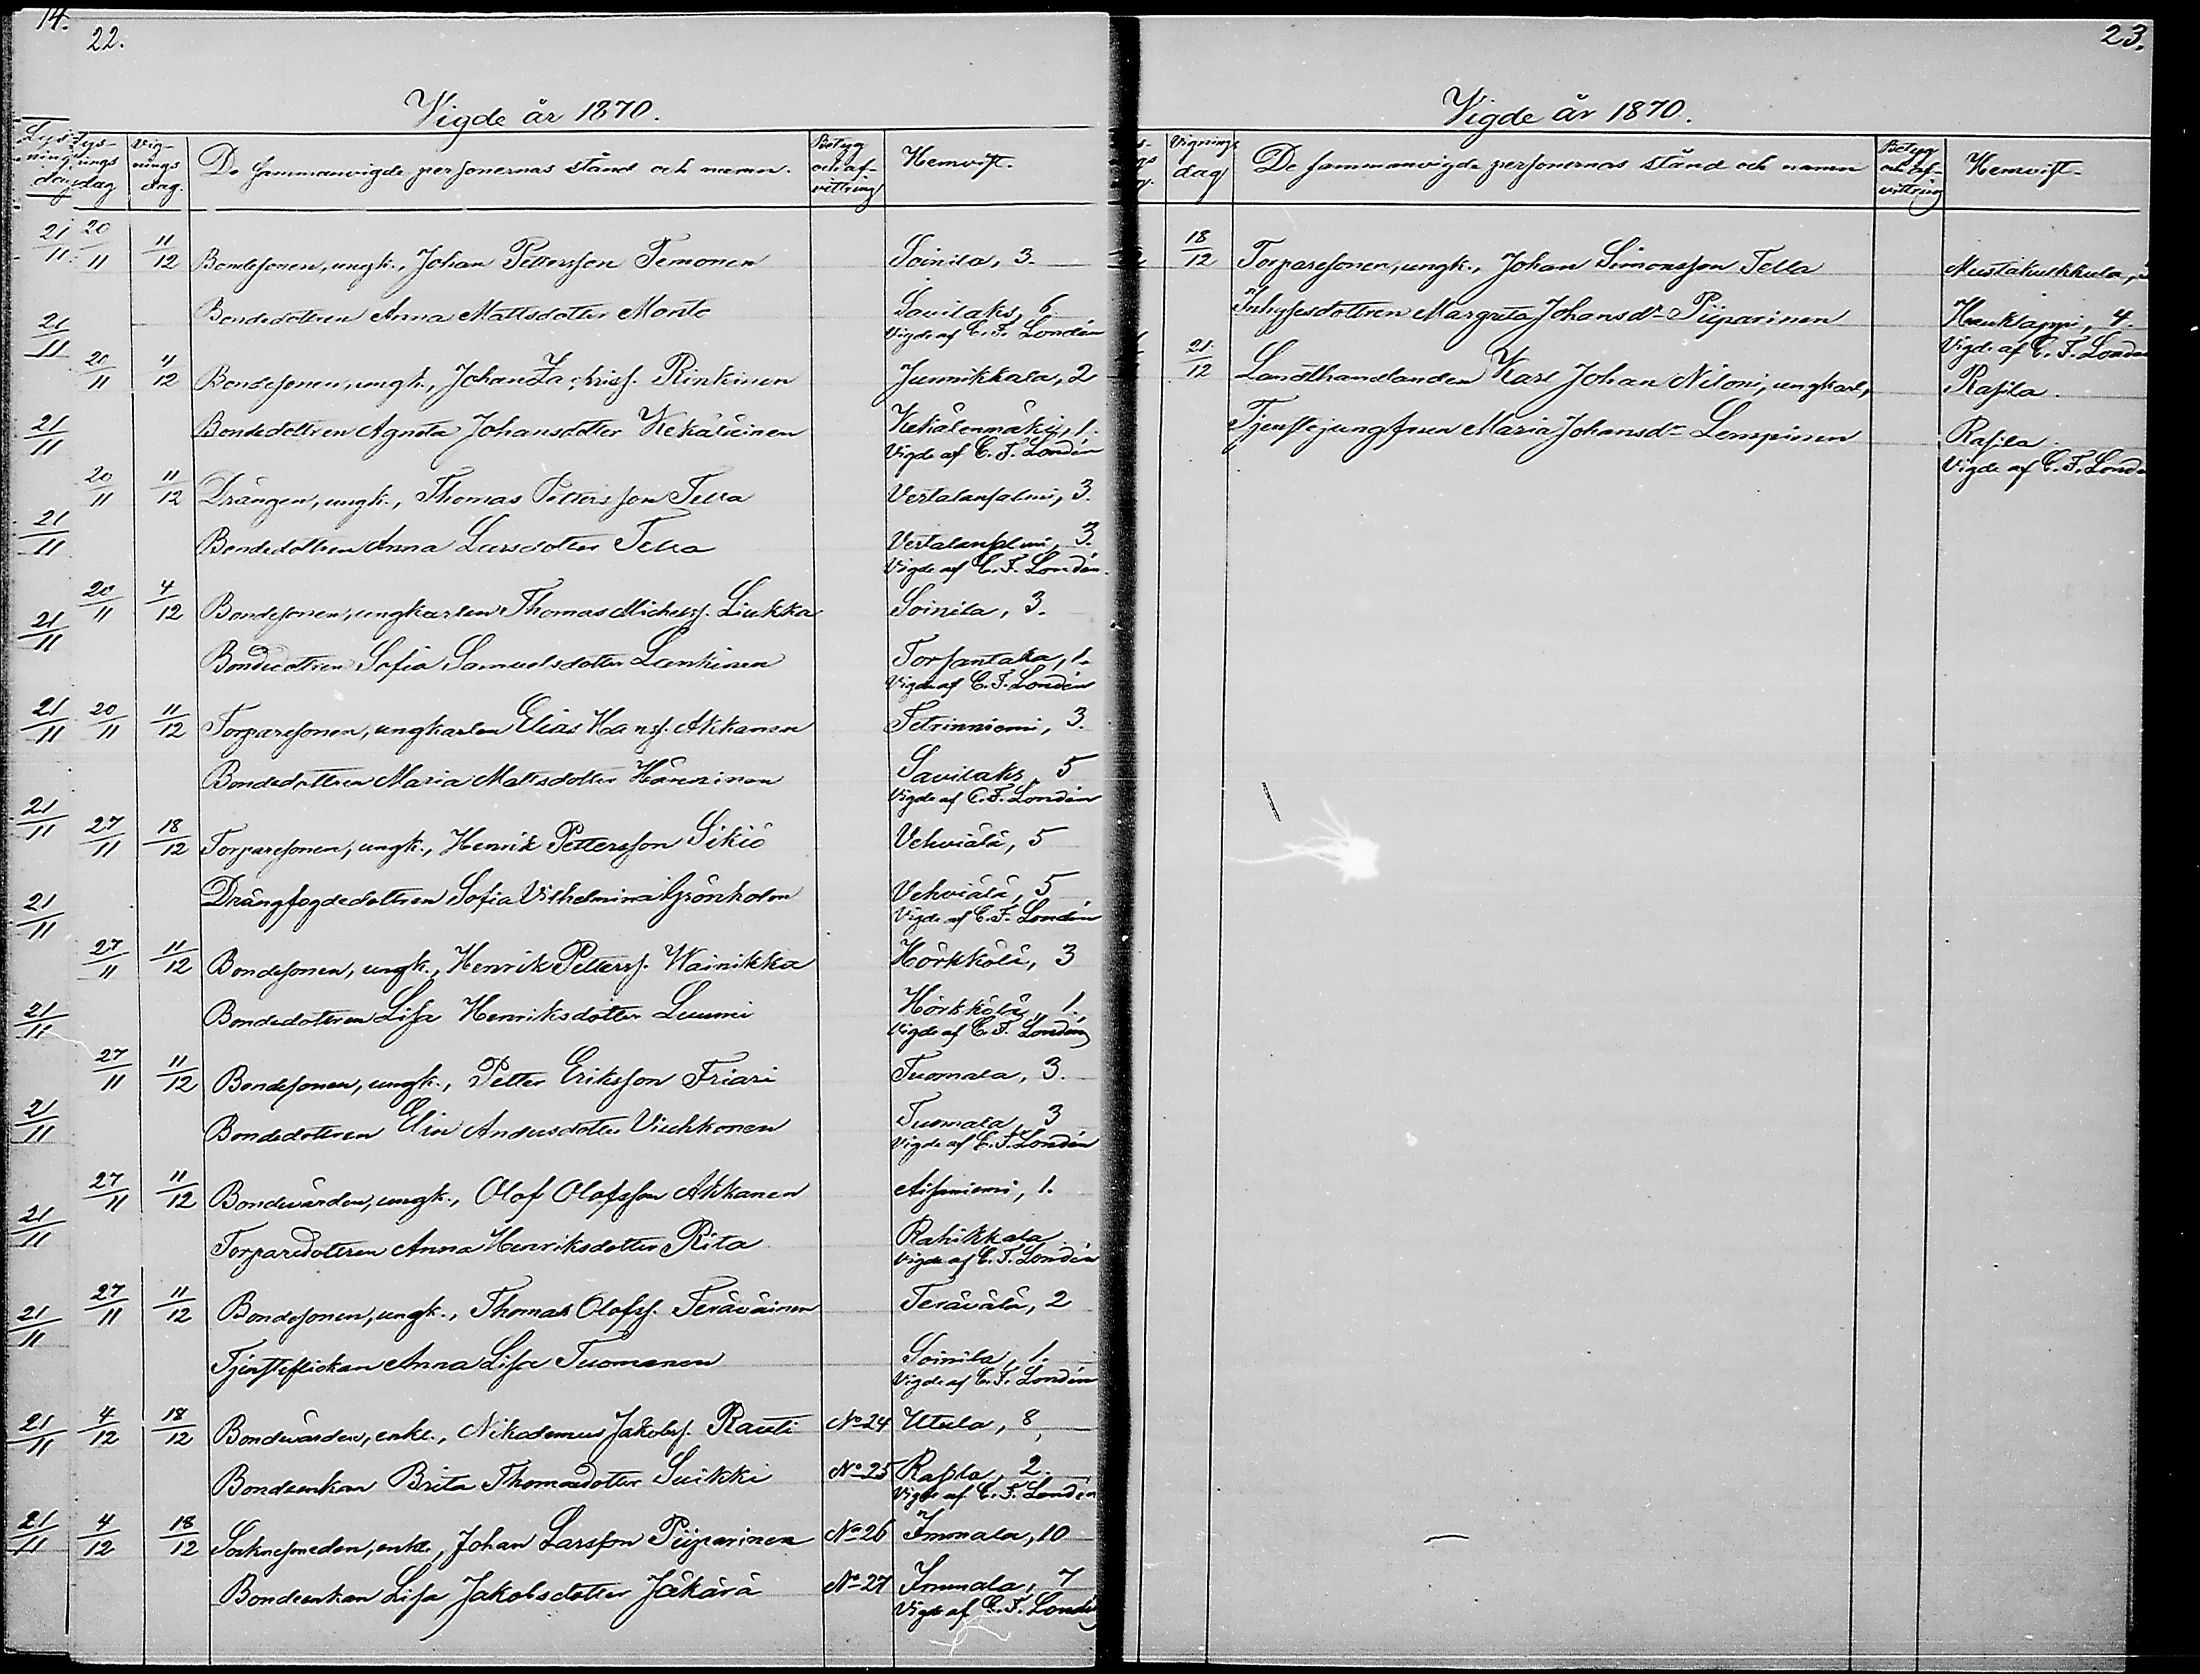 14.
22.
Vigde år 1870.
Lysnings dag
Lysnings dag
Vignings dag.
De sammanvigde personernas stånd och namn.
Betyg och afvittring
Hemvist.
21/11 20/11 11/12 Bondesonen, ungk., Johan Pettersson Temonen Soinila, 3.
Bondedottren Anna Mattsdotter Monto Savilaks, 6
21/11 Vigde af C. F. Londén
20/11 4/12 Bondesonen, ungk., Johan Zachriss. Rinkinen Junnikkala, 2
21/11 Bondedottren Agneta Johansdotter Kekäläinen Kekälenmäki, 1.
Vigde af C. F. Londén
20/11 11/12 Drängen, ungk., Thomas Pettersson Tella Vertalansalmi, 3.
21/11 Bondedottren Anna Larsdotter Tella Vertalansalmi, 3.
Vigde af C. F. Londén.
20/11 4/12 Bondesonen, ungkarlen Thomas Michelss. Liukka Soinila, 3.
21/11 Bondedottren Sofia Samuelsdotter Lankinen Torsantaka, 1.
Vigde af C. F. Londén
21/11 20/11 11/12 Torparesonen, ungkarlen Elias Hanss. Akkanen Tetrinniemi, 3.
Bondedottren Maria Mattsdotter Hänninen Savilaks, 5
Vigde af C. F. Londén
21/11 27/11 18/12 Torparesonen, ungk., Henrik Pettersson Sikiö Vehviälä, 5
21/11 Drängfogdedottren Sofia Vilhelmina Grönholm Vehviälä, 5
Vigde af C. F. Londén
27/11 11/12 Bondesonen, ungk., Henrik Petterss. Wainikka Hörkkölä, 3
21/11 Bondedottren Lisa Henriksdotter Luumi Hörkkölä, 1.
Vigde af C. F. Londén
27/11 11/12 Bondesonen, ungk., Petter Eriksson Friari Tuomala, 3.
21/11 Bondedottren Elin Andersdotter Viuhkonen Tuomala, 3
Vigde af C. F. Londén
27/11 11/12 Bondevärden, ungk., Olof Olofsson Akkanen Aisaniemi, 1.
21/11 Torparedottren Anna Henriksdotter Rita Rahikkala
Vigde af C. F. Londén
21/11 27/11 11/12 Bondesonen, ungk., Thomas Olofss. Teräväinen Terävälä, 2
Tjensteflickan Anna Lisa Tuomanen Soinila, 1.
Vigde af C. F. Londén
21/11 4/12 18/12 Bondvärden, enkl., Nikodemus Jakobss. Rauti No 24 Utula, 8,
Bondeenkan Brita Thomasdotter Suikki No 25 Rasila, 2.
Vigde af C. F. Londén
21/11 4/12 18/12 Socknesmeden, enkl., Johan Larsson Piiparinen No 26 Immala, 10
Bondeenkan Lisa Jakobsdotter Jäkärä No 27 Immala, 7
Vigde af C. F. Londén
23.
Vigde år 1870.
Vignings dag
De sammanvigde personernas stånd och namn
Betyg och afvittring
Hemvist.
18/12 Torparesonen, ungk., Johan Simonsson Tella Mustakulkkula,
Inhysesdottren Margreta Johansdr Piiparinen Haukslappi, 4.
Vigde af C. F. Londé
21/12 Landthandlanden Karl Johan Niloni, ungkarl, Rasila.
Tjenstejungfrun Maria Johansdr Lempinen Rasila
Vigde af C. F. Londé